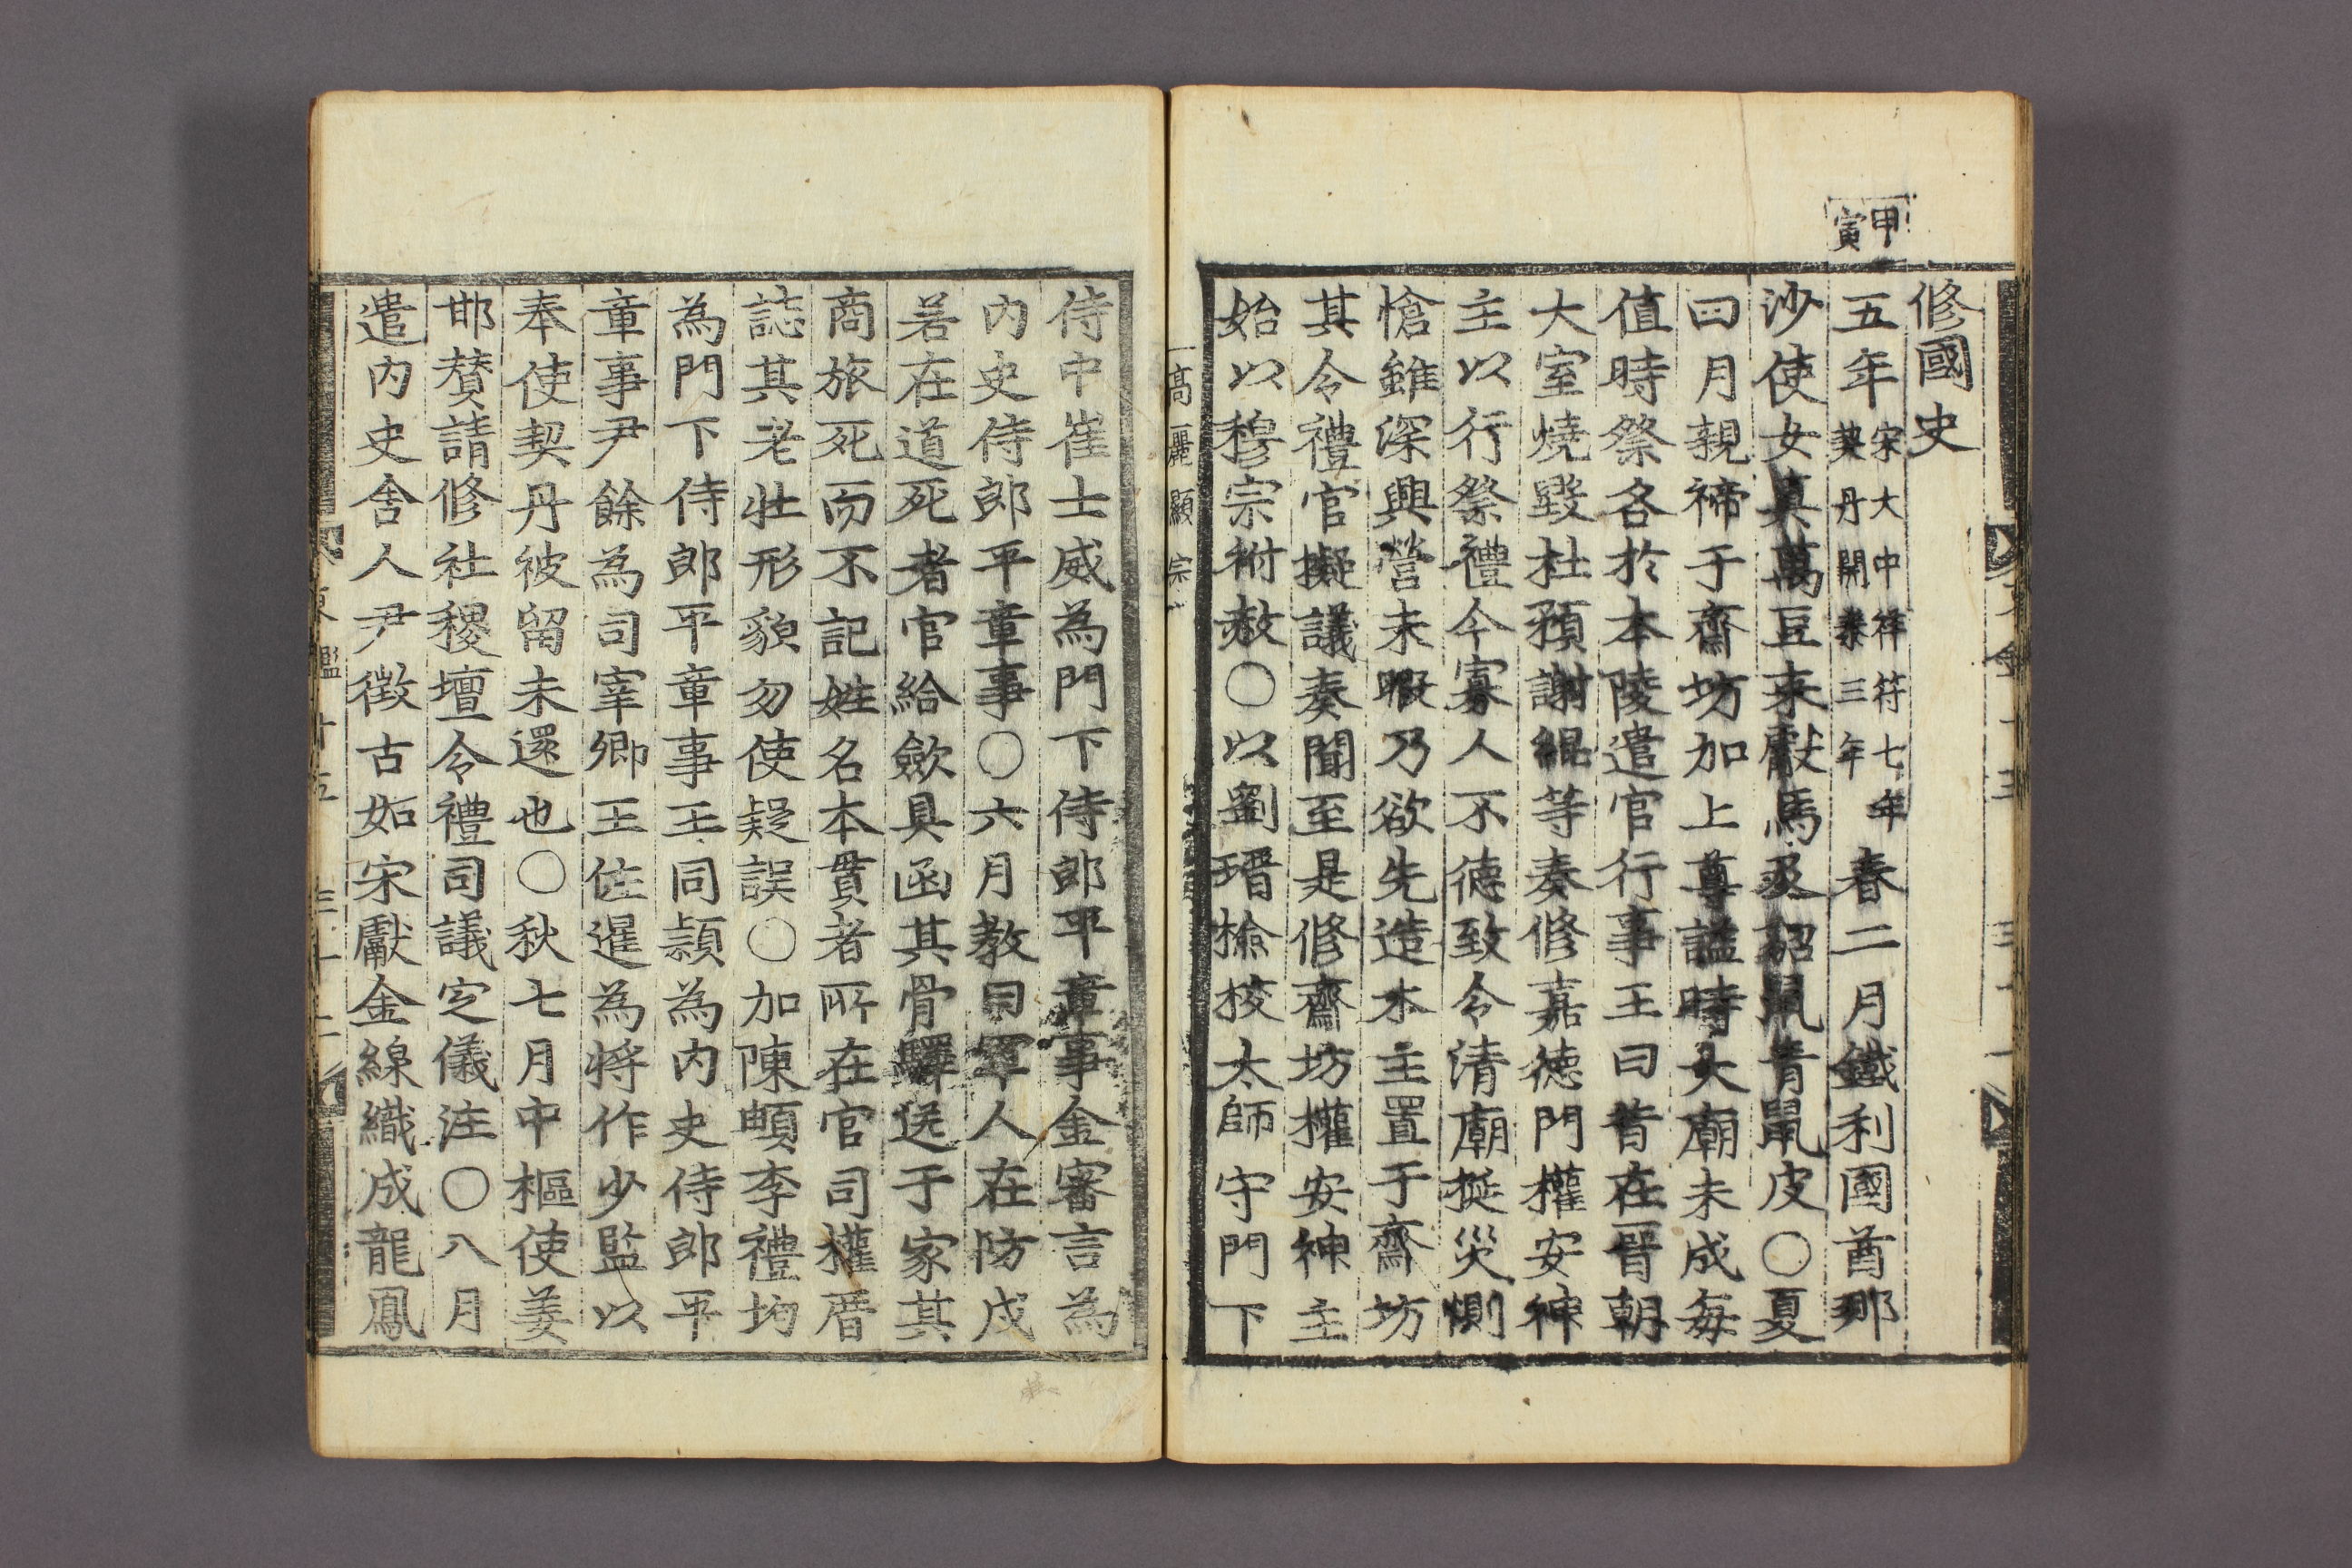 甲寅
修國史
五年宋大中祥符七年契丹開泰三年春二月鐵利國酋那
沙使女真萬豆来獻馬及貂鼠青鼠皮○夏
四月親禘于齋坊加上尊謚時大廟未成每
值時祭各於本陵遣官行事王曰昔在晉朝
大室燒毀杜預謝緄等奏修嘉德門權安神
主以行祭禮今寡人不德致令清廟挻災惻
愴雖深興營未暇乃欲先造木主置于齋坊
其令禮官擬議奏聞至是修齋坊權安神主
始以穆宗祔赦○以劉瑨撿校太師守門下
高麗顯宗
侍中崔士威為門下侍郎平章事金審言為
內史侍郎平章事○六月教曰軍人在防戍
若在道死者官給歛具函其骨驛送于家其
商旅死而不記姓名本貫者所在官司權厝
誌其老壯形貌勿使疑誤○加陳頔李禮均
為門下侍郎平章事王同潁為內史侍郎平
章事尹餘為司宰卿王佐暹為將作少監以
奉使契丹被留未還也○秋七月中樞使姜
邯賛請修社稷壇令禮司議定儀注○八月
遣內史舍人尹徵古如宋獻金線織成龍鳳